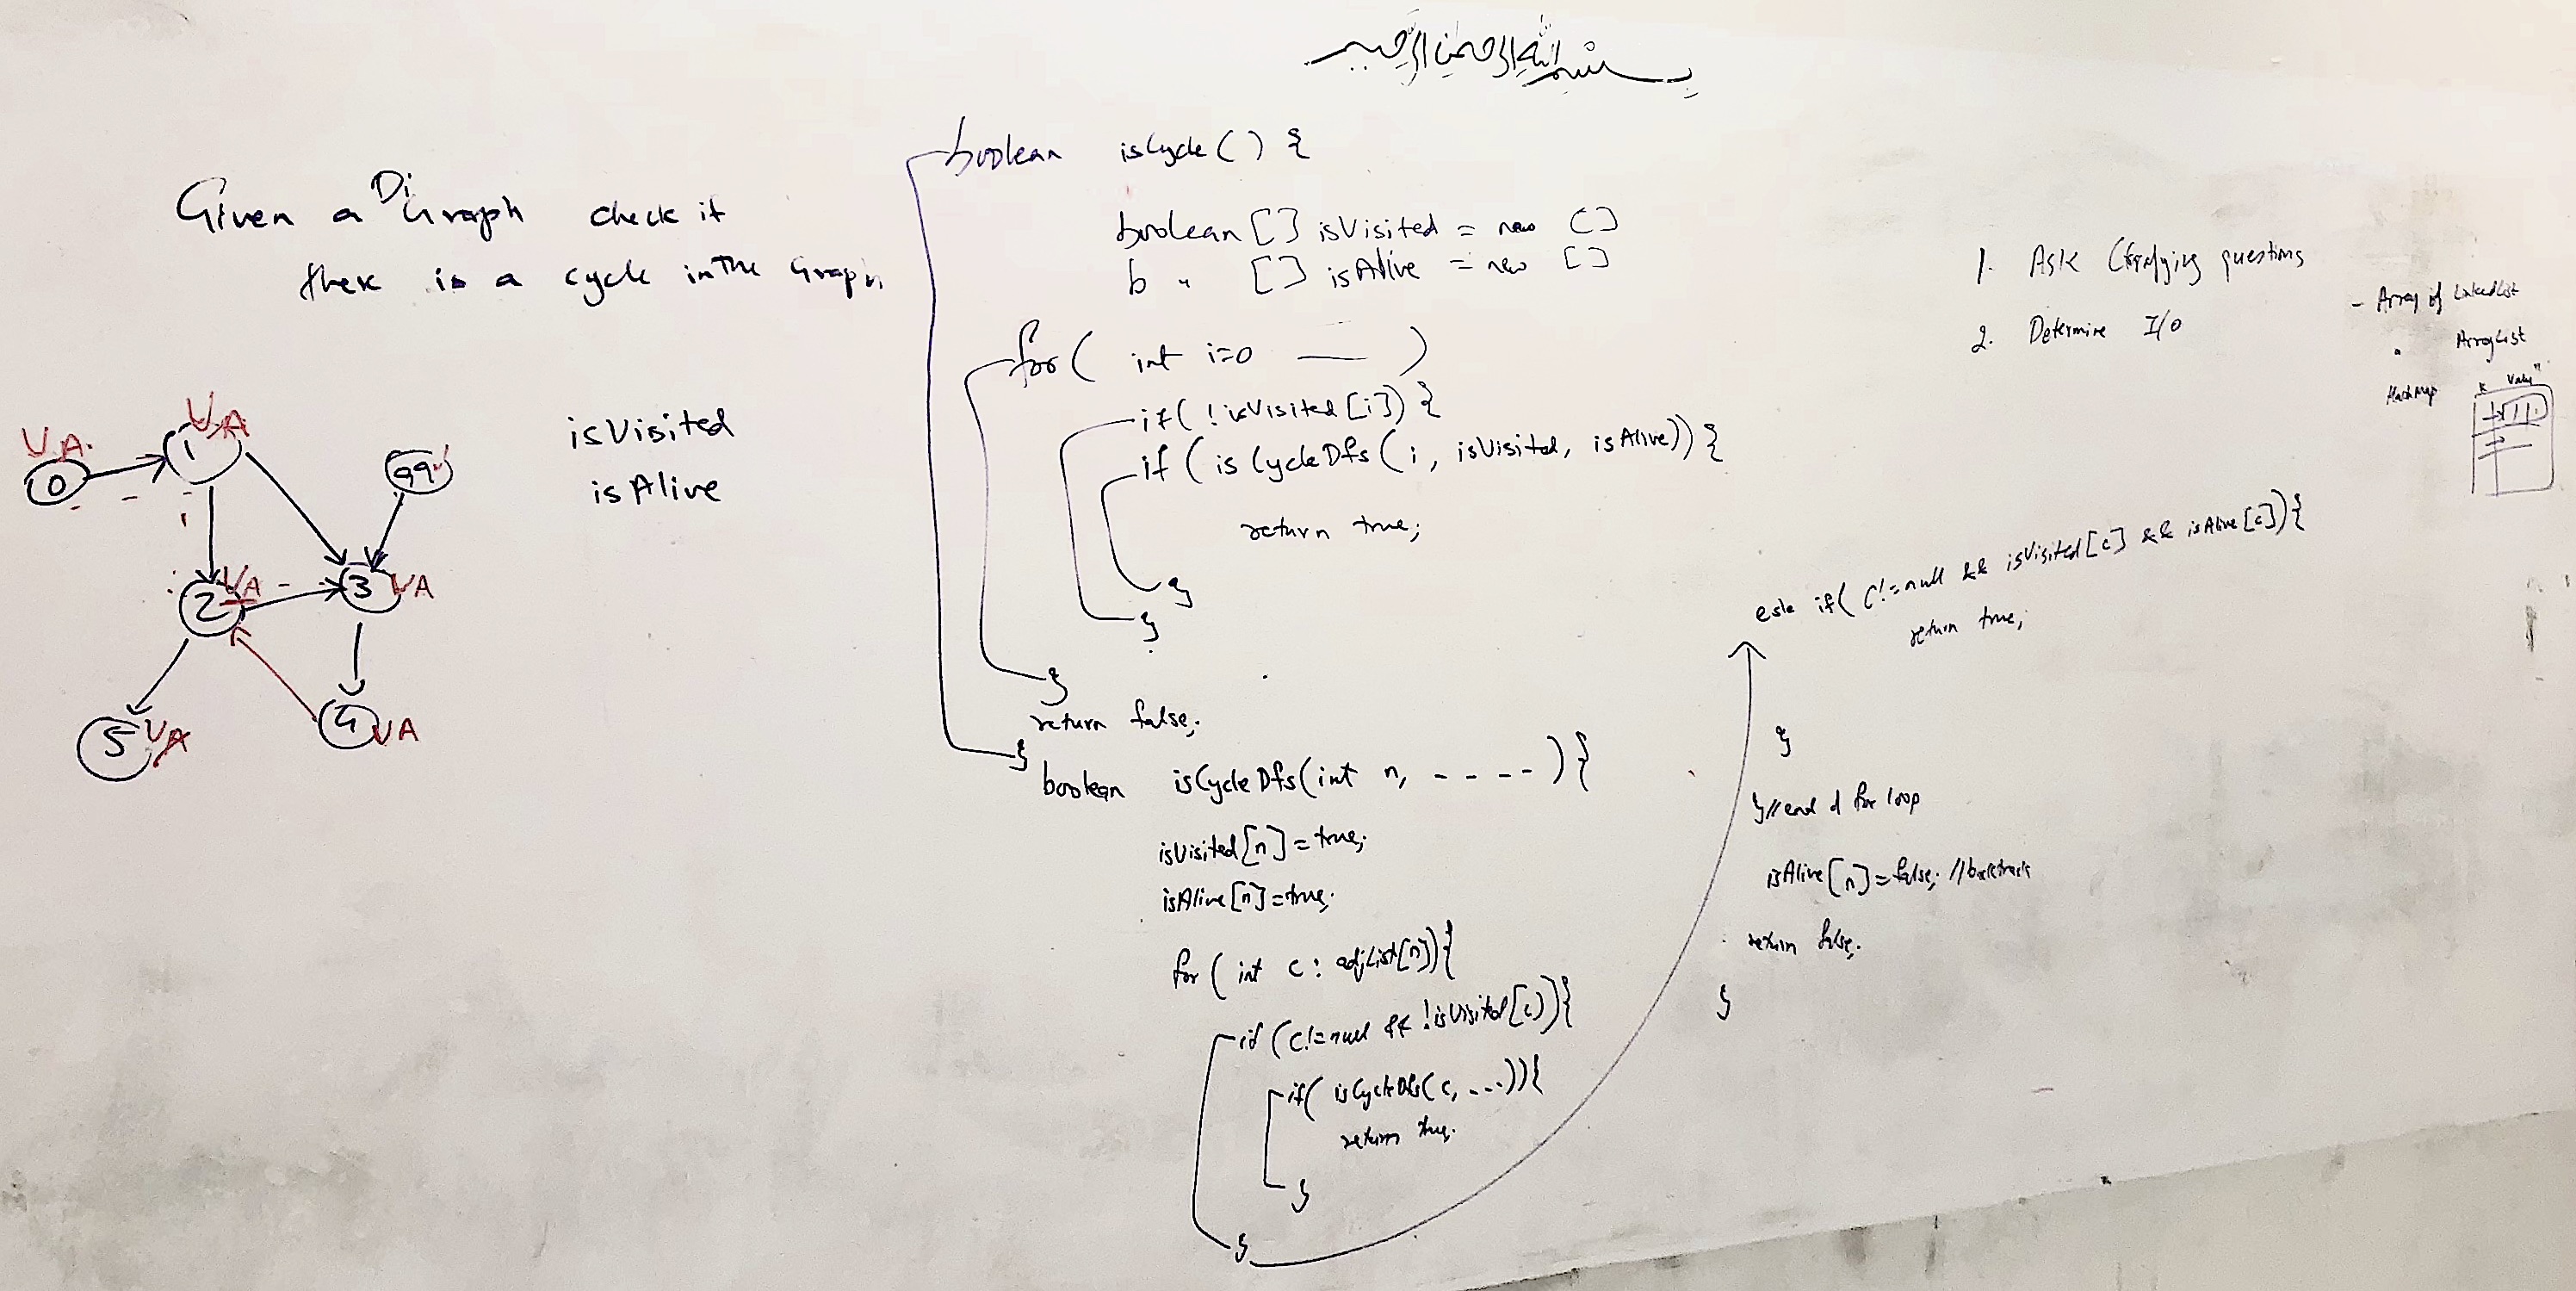 بسم الله الرحمن الرحيم
Given a DiGraph check if
there is a cycle in the Graph
isVisited
isAlive
V A.
0
V A
1
99
V A
2
3
V A
5
V A
4
V A
boolean isCycle() {
boolean [] isVisited = new []
b " [] isAlive = new []
for( int i=0 ___ )
if( !isVisited[i]) {
if (isCycleDfs(i, isVisited, isAlive)) {
return true;
}
}
}
return false;
}
boolean isCycleDfs(int n, - - - - ) {
isVisited[n] = true;
isAlive[n] = true;
for( int c : adjList[n]){
if (c!=null && !isVisited[c]){
if( isCycleDfs(c, ---)){
return true;
}
}
esle if( c!=null && isVisited[c] && isAlive[c]){
return true;
}
}//end of for loop
isAlive[n]=false; //backtrack
return false;
}
1. Ask Clarifying questions
2. Determine I/O
- Array of LinkedList
" ArrayList
HashMap K Value